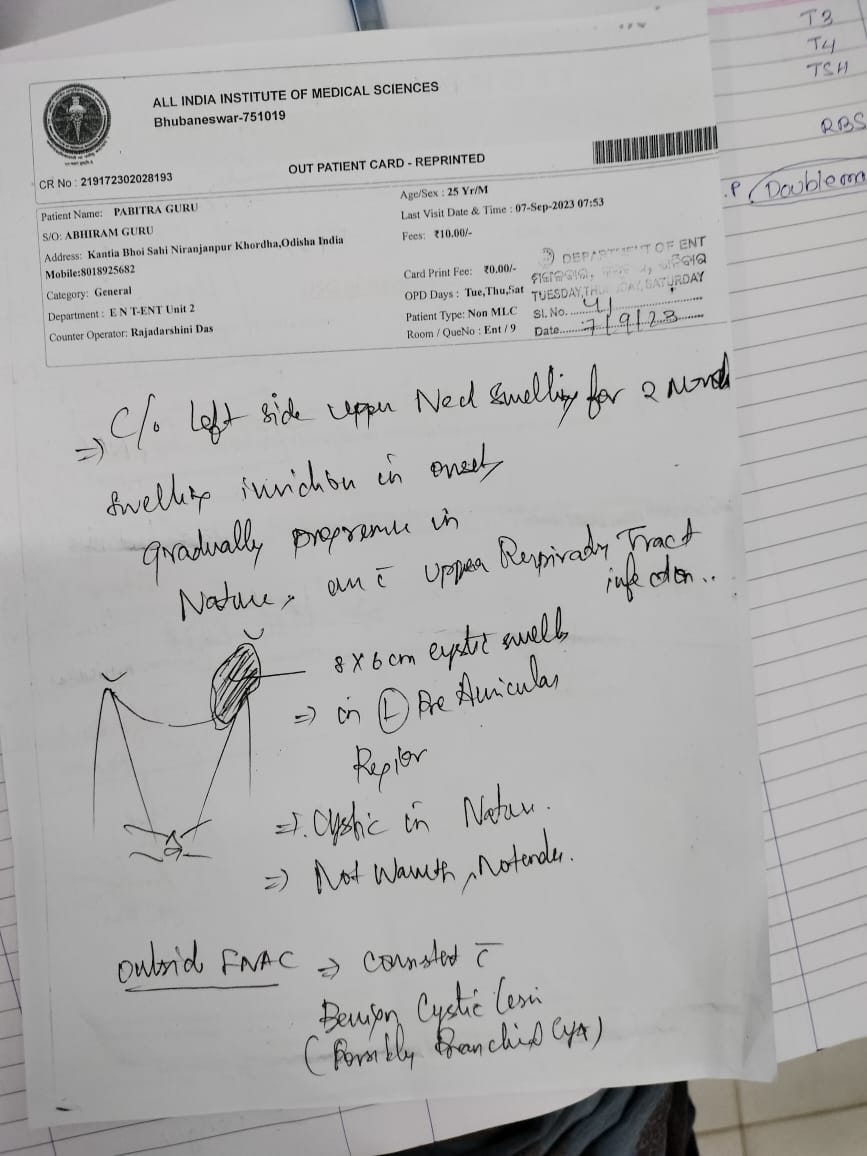 ALL INDIA INSTITUTE OF MEDICAL SCIENCES
Bhubaneswar-751019
OUT PATIENT CARD - REPRINTED
CR No : 219172302028193
Patient Name: PABITRA GURU
S/O: ABHIRAM GURU
Address: Kantia Bhoi Sahi Niranjanpur Khordha,Odisha India
Mobile:8018925682
Category: General
Department : E N T-ENT Unit 2
Counter Operator: Rajadarshini Das
Age/Sex : 25 Yr/M
Last Visit Date & Time : 07-Sep-2023 07:53
Fees: ₹10.00/-
Card Print Fee: ₹0.00/-
OPD Days : Tue,Thu,Sat
Patient Type: Non MLC
Room / QueNo : Ent / 9
DEPARTMENT OF ENT
TUESDAY, THURSDAY, SATURDAY
Sl. No. 41
Date 7/9/23
=> C/o Left side upper Neck swelling for 2 Month
Swelling in onset
gradually progressive in
Nature, c̄ Upper Respiratory Tract
infection..
8 X 6 cm cystic swelling
=> in Ⓛ Pre Auricular
Region
=> Cystic in Nature.
=> Not Warmth, Not tender.
Outside FNAC => Consisted c̄
Benign Cystic Lesion
(Possibly Branchial Cyst)
T3
T4
TSH
RBS
P, Double